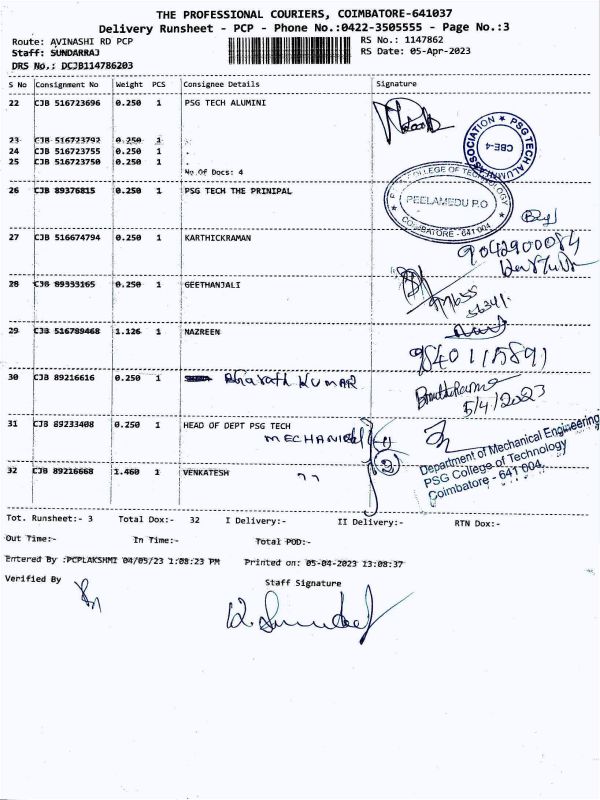 THE PROFESSIONAL COURIERS, COIMBATORE-641037
Delivery Runsheet - PCP - Phone No.:0422-3505555 - Page No.:3
Route: AVINASHI RD PCP
RS No.: 1147862
Staff: SUNDARRAJ
RS Date: 05-Apr-2023
DRS No.: DCJB114786203
S No Consignment No Weight PCS Consignee Details Signature
22 CJB 516723696 0.250 1 PSG TECH ALUMINI
23 CJB 516723792 0.250 1 .
24 CJB 516723755 0.250 1 .
25 CJB 516723750 0.250 1 .
No.Of Docs: 4
ASSOCIATION ★ PSG TECH ALUMNI
CBE-4
26 CJB 89376815 0.250 1 PSG TECH THE PRINIPAL
COLLEGE OF TECHNOLOGY
PEELAMEDU P.O
COIMBATORE - 641 004
27 CJB 516674794 0.250 1 KARTHICKRAMAN
9042900084
28 CJB 89333165 0.250 1 GEETHANJALI
29 CJB 516789468 1.126 1 NAZREEN
9840115891
30 CJB 89216616 0.250 1 Bharath KUMAR
5/4/2023
31 CJB 89233408 0.250 1 HEAD OF DEPT PSG TECH
MECHANICAL
Department of Mechanical Engineering
PSG College of Technology
Coimbatore - 641 004.
32 CJB 89216668 1.460 1 VENKATESH ,,
(2)
Tot. Runsheet:- 3 Total Dox:- 32 I Delivery:- II Delivery:- RTN Dox:-
Out Time:- In Time:- Total POD:-
Entered By :PCPLAKSHMI 04/05/23 1:08:23 PM Printed on: 05-04-2023 13:08:37
Verified By Staff Signature